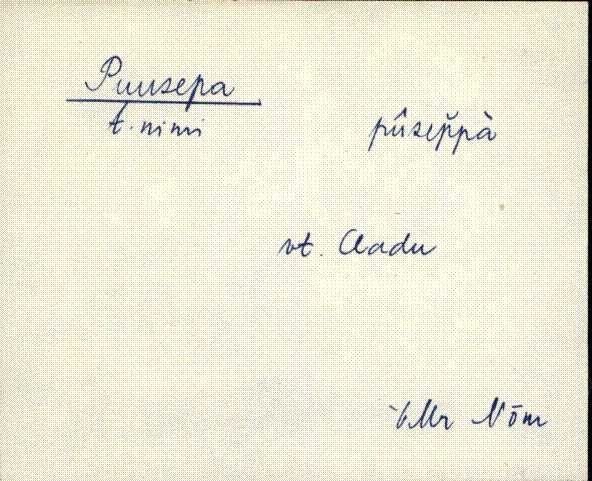 Puusepa
t. nimi
pûsep̆pà
vt. Aadu
VMr Nõm